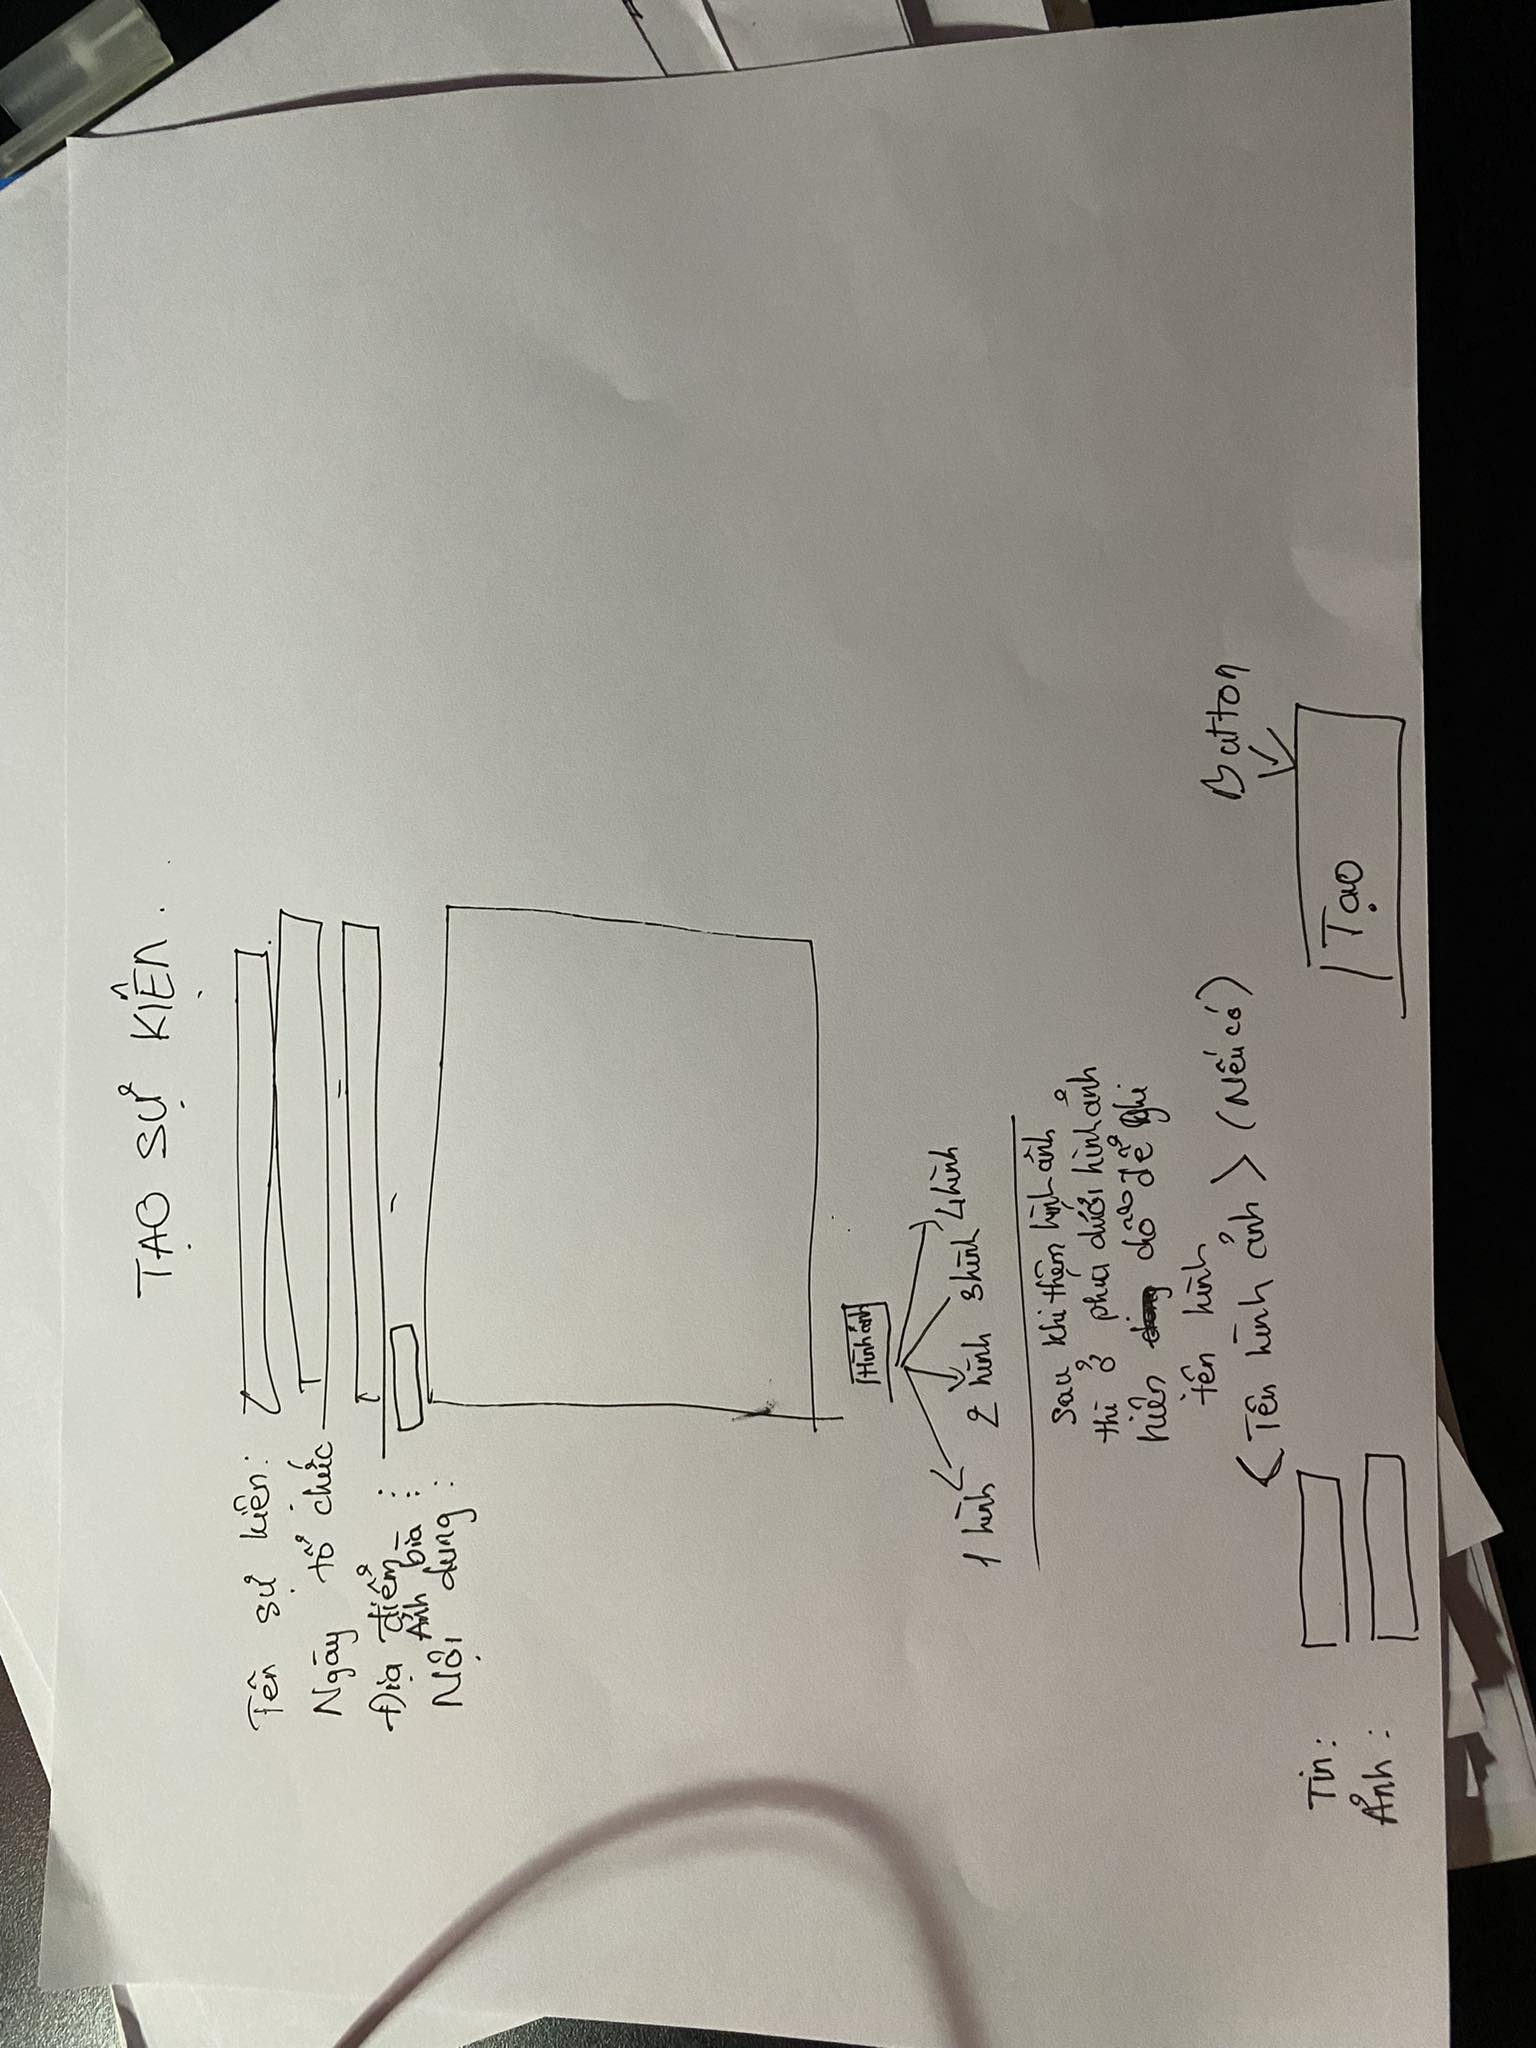 TẠO SỰ KIỆN.
Tên sự kiện:
Ngày tổ chức
Địa điểm :
Ảnh bìa :
Nội dung :
Hình ảnh
1 hình 2 hình 3 hình 4 hình
Sau khi thêm hình ảnh
thì ở phía dưới hình ảnh
hiện để ghi
tên hình
<Tên hình ảnh> (Nếu có)
Button
Tin:
Ảnh :
Tạo